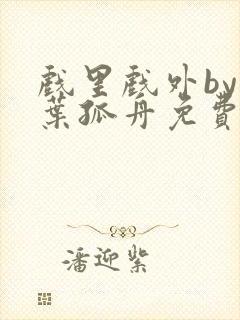 戲里戲外by
葉孤舟免費
潘迎紫